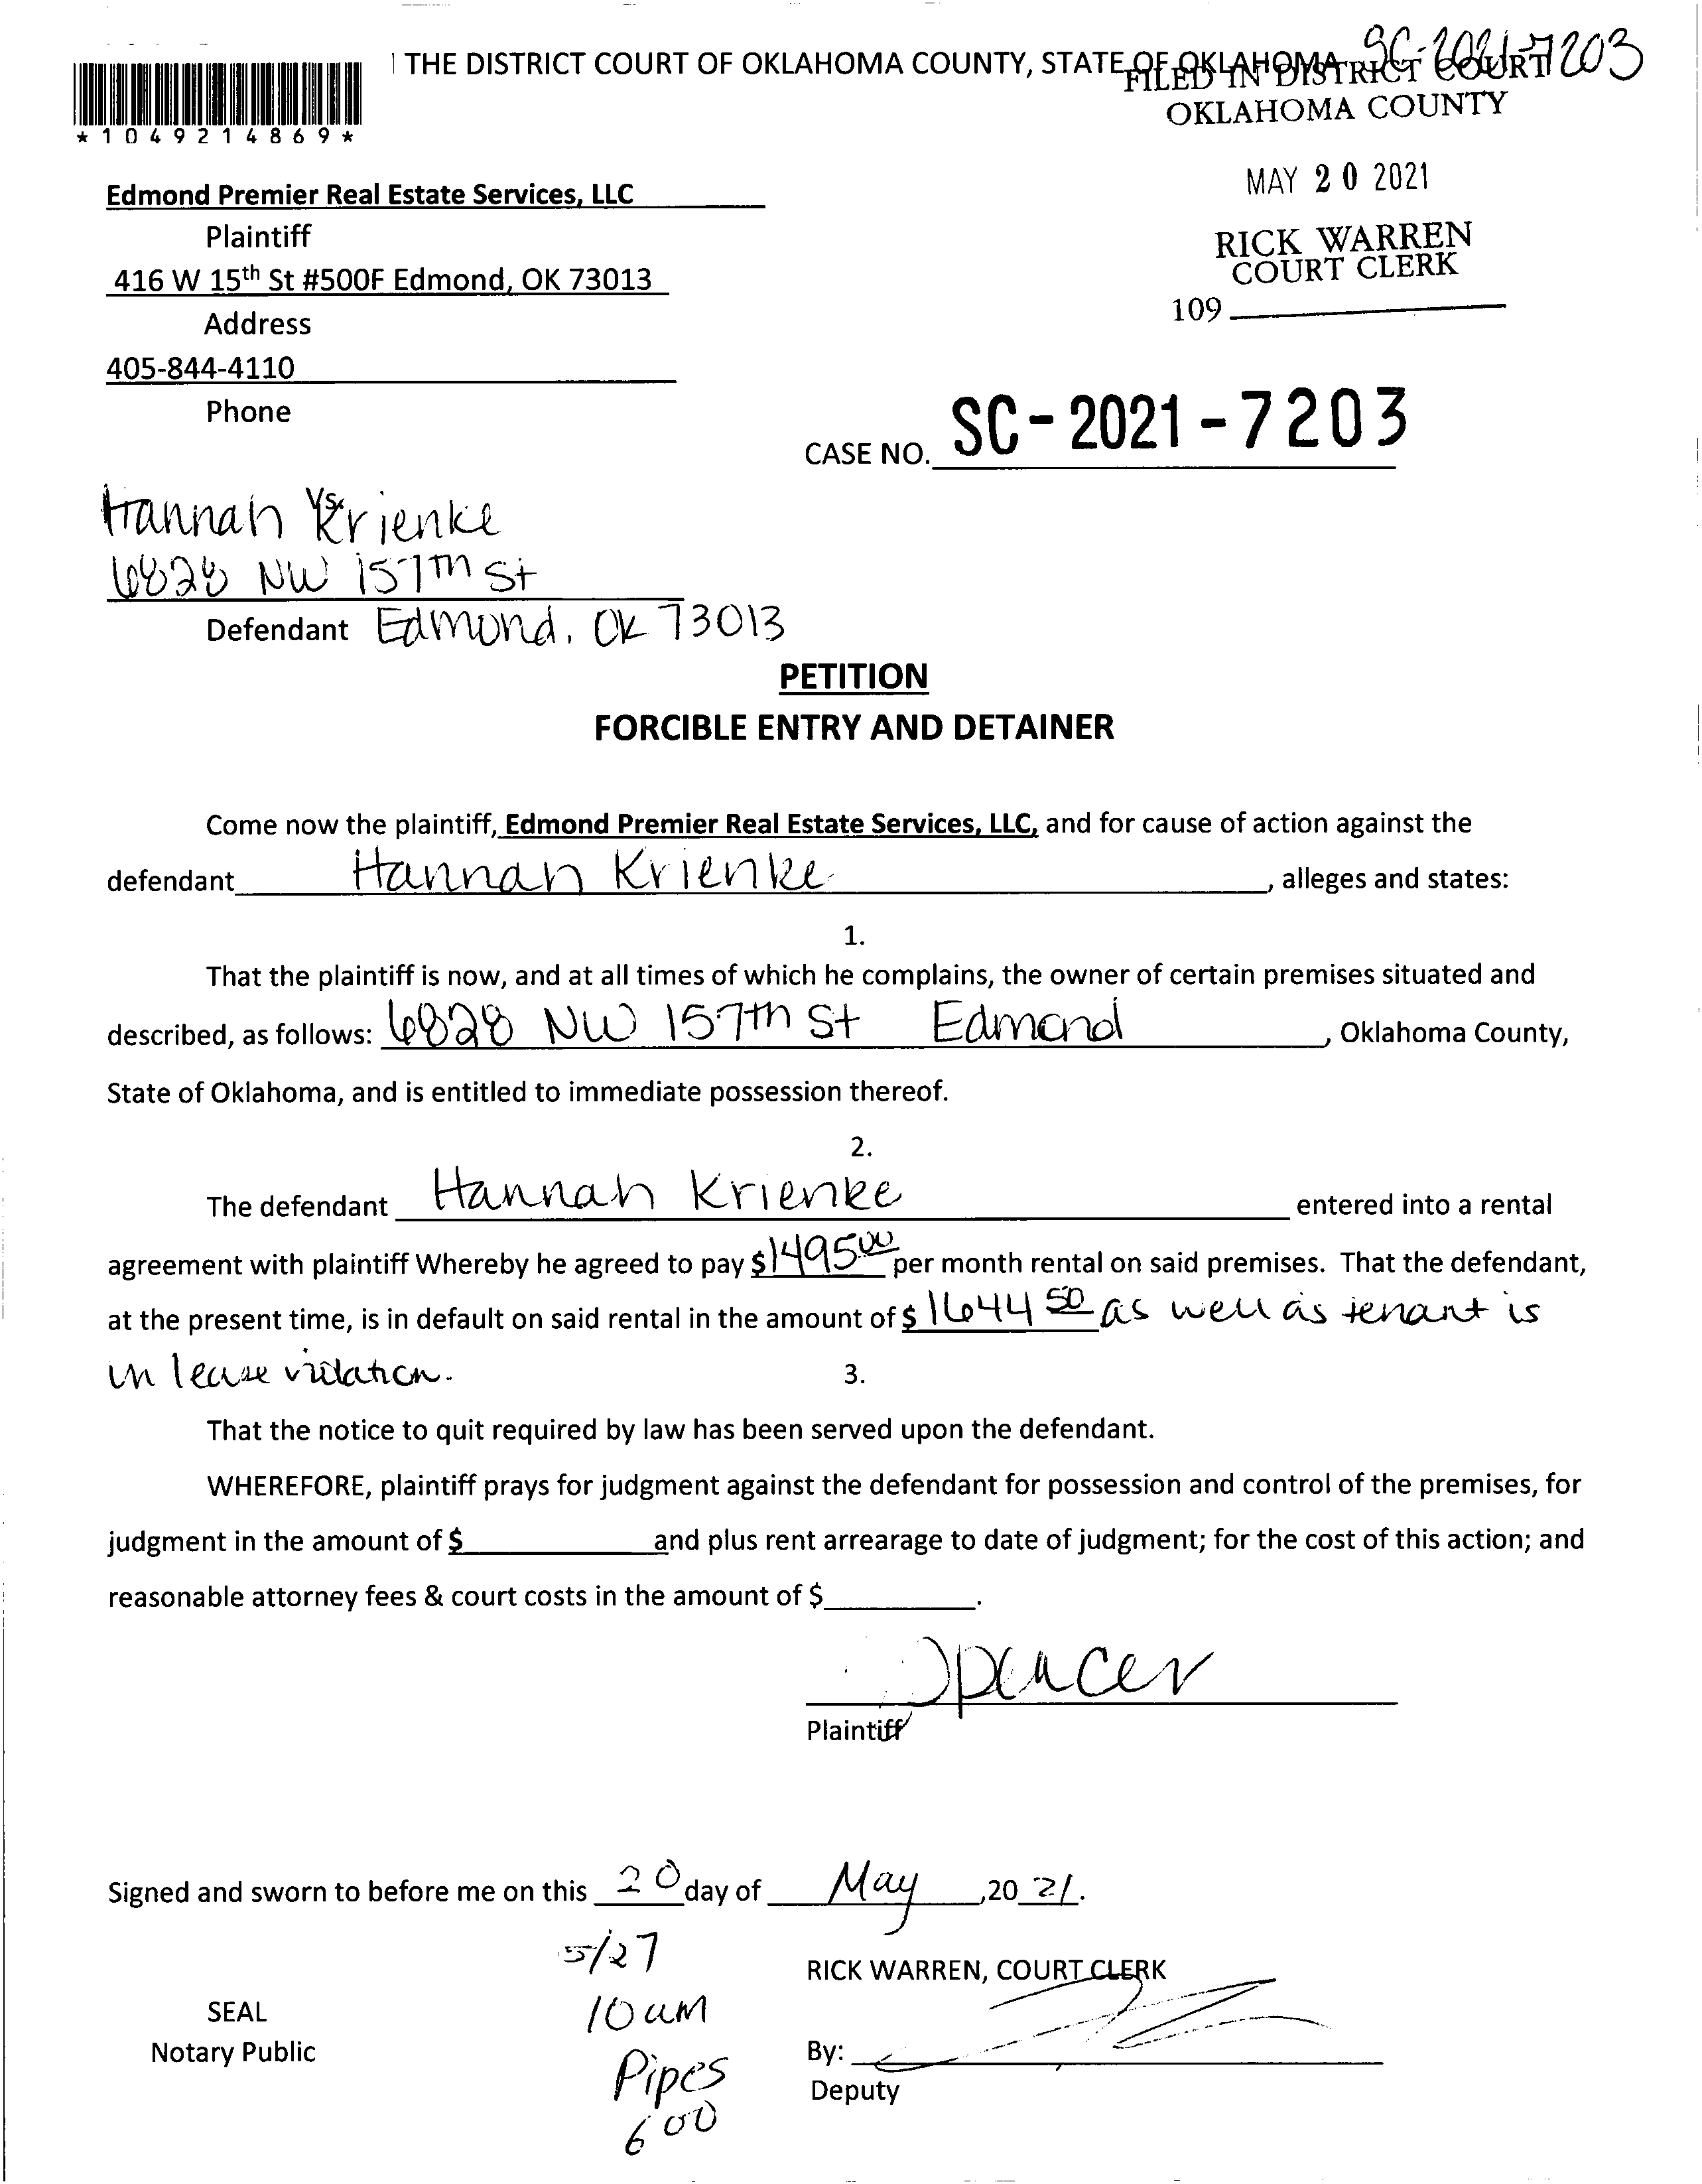 THE DISTRICT COURT OF OKLAHOMA COUNTY, STATE OF OKLAHOMA SC-2021-7203
FILED IN DISTRICT COURT
OKLAHOMA COUNTY
*1049214869*
MAY 20 2021
Edmond Premier Real Estate Services, LLC
Plaintiff
RICK WARREN
COURT CLERK
416 W 15th St #500F Edmond, OK 73013
109
Address
405-844-4110
Phone
CASE NO. SC-2021-7203
Vs.
Hannah Krienke
6828 NW 157th St
Defendant Edmond, OK 73013
PETITION
FORCIBLE ENTRY AND DETAINER
Come now the plaintiff, Edmond Premier Real Estate Services, LLC, and for cause of action against the
defendant Hannah Krienke, alleges and states:
1.
That the plaintiff is now, and at all times of which he complains, the owner of certain premises situated and
described, as follows: 6828 NW 157th St Edmond, Oklahoma County,
State of Oklahoma, and is entitled to immediate possession thereof.
2.
The defendant Hannah Krienke entered into a rental
agreement with plaintiff Whereby he agreed to pay $1495.00 per month rental on said premises. That the defendant,
at the present time, is in default on said rental in the amount of $ 1644 50 as well as tenant is
in lease violation.
3.
That the notice to quit required by law has been served upon the defendant.
WHEREFORE, plaintiff prays for judgment against the defendant for possession and control of the premises, for
judgment in the amount of $ and plus rent arrearage to date of judgment; for the cost of this action; and
reasonable attorney fees & court costs in the amount of $ .
Spencer
Plaintiff
Signed and sworn to before me on this 20 day of May ,20 21.
5/27
RICK WARREN, COURT CLERK
SEAL
10 am
Notary Public
By:
Pipes
Deputy
600